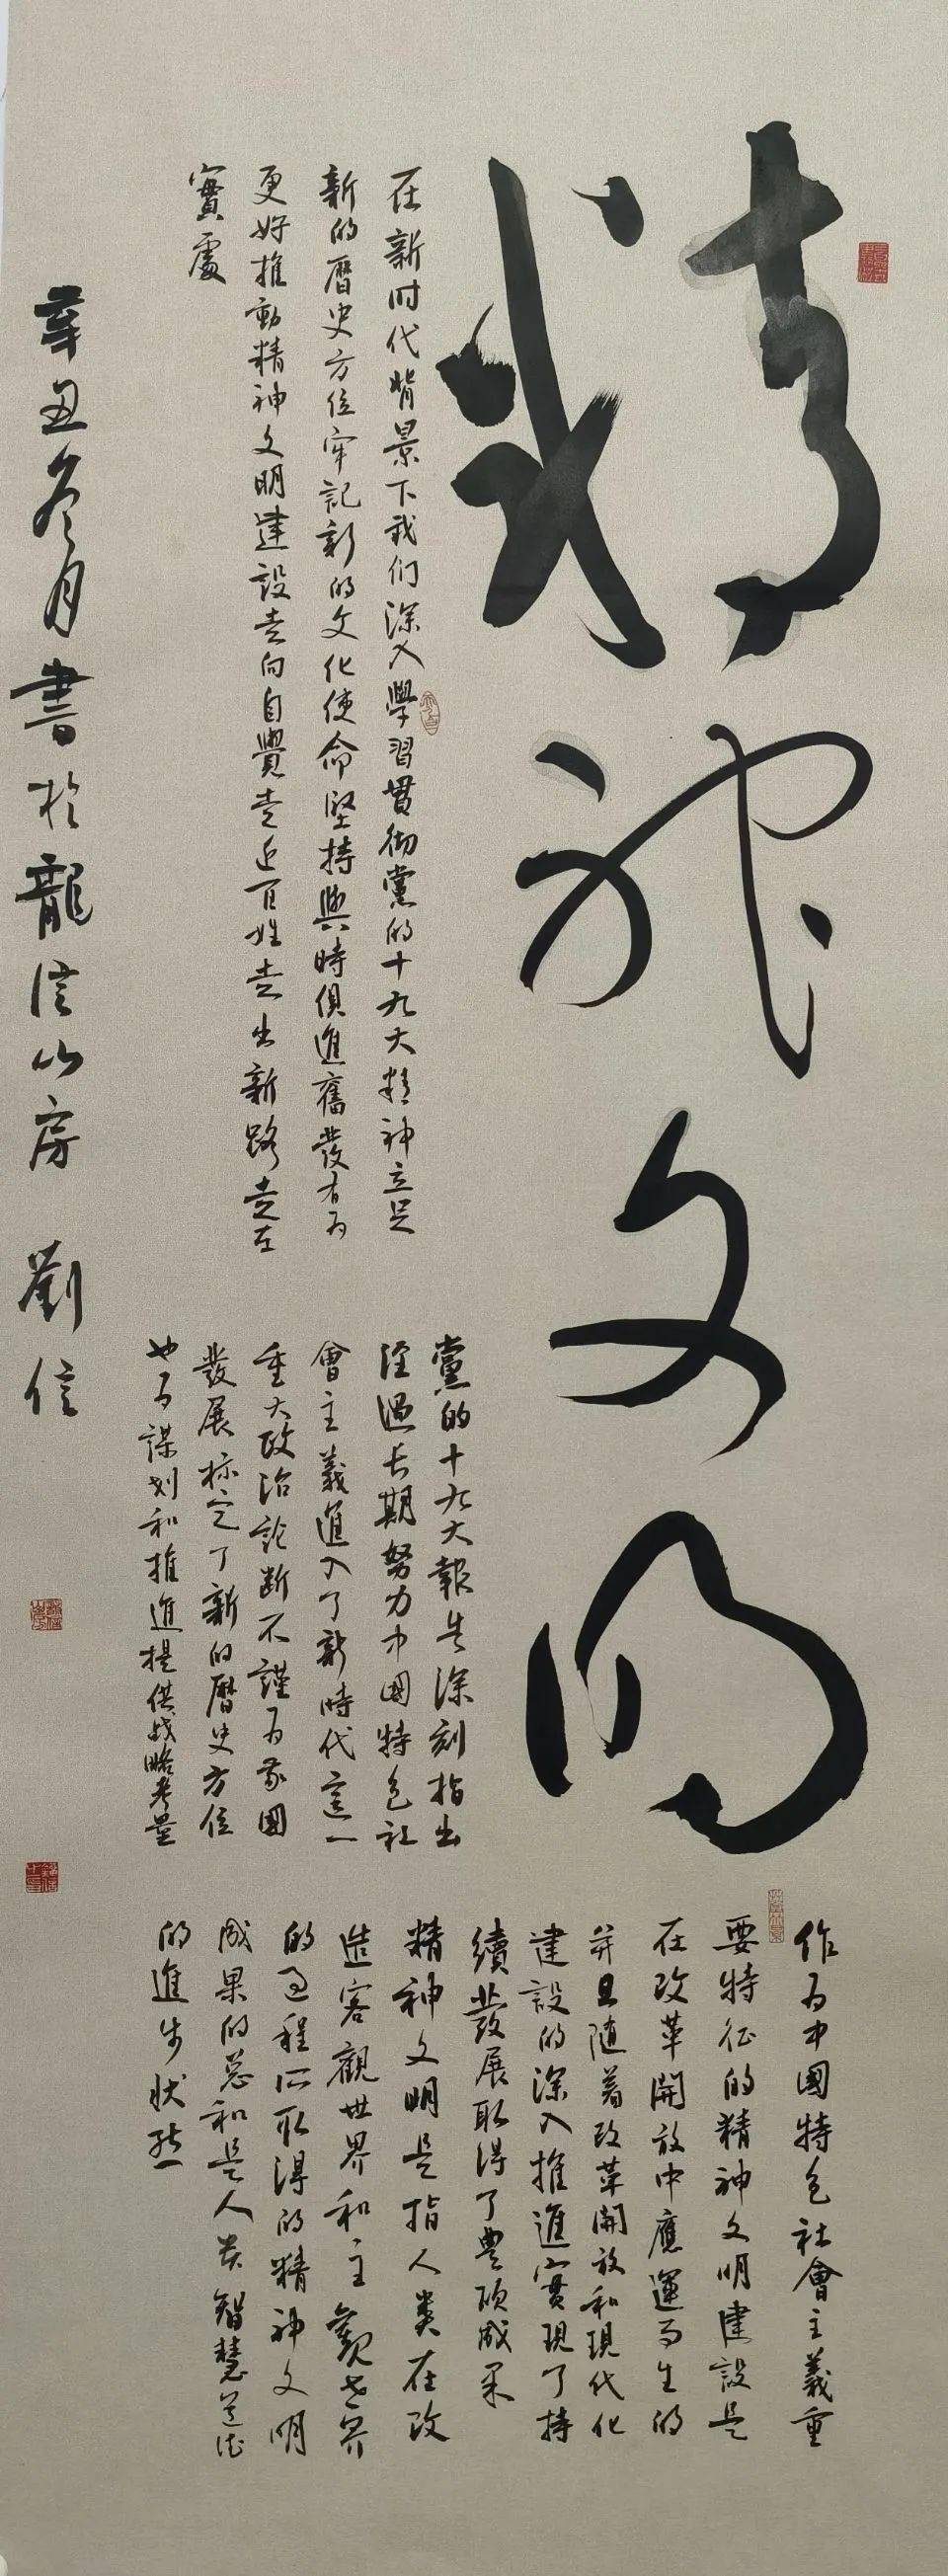 精神文明
作为中國特色社會主義重
要特征的精神文明建設是
在改革開放中應運而生的
并且随着改革開放和現代化
建設的深入推進實現了持
續發展取得了豊碩成果
精神文明是指人类在改
造客觀世界和主觀世界
的过程所取得的精神文明
成果的总和是人类智慧道德
的進步狀態
党的十九大報告深刻指出
經過长期努力中國特色社
會主義進入了新時代這一
重大政治論断不謹为我國
發展标定了新的曆史方位
也为謀划和推進提供战略考量
在新时代背景下我们深入學習貫彻黨的十九大精神立足
新的曆史方位牢記新的文化使命堅持與時俱進奮發有为
更好推動精神文明建設走向自覺走近百姓走出新路走在
實處
辛丑冬月書於龍信山房 劉信